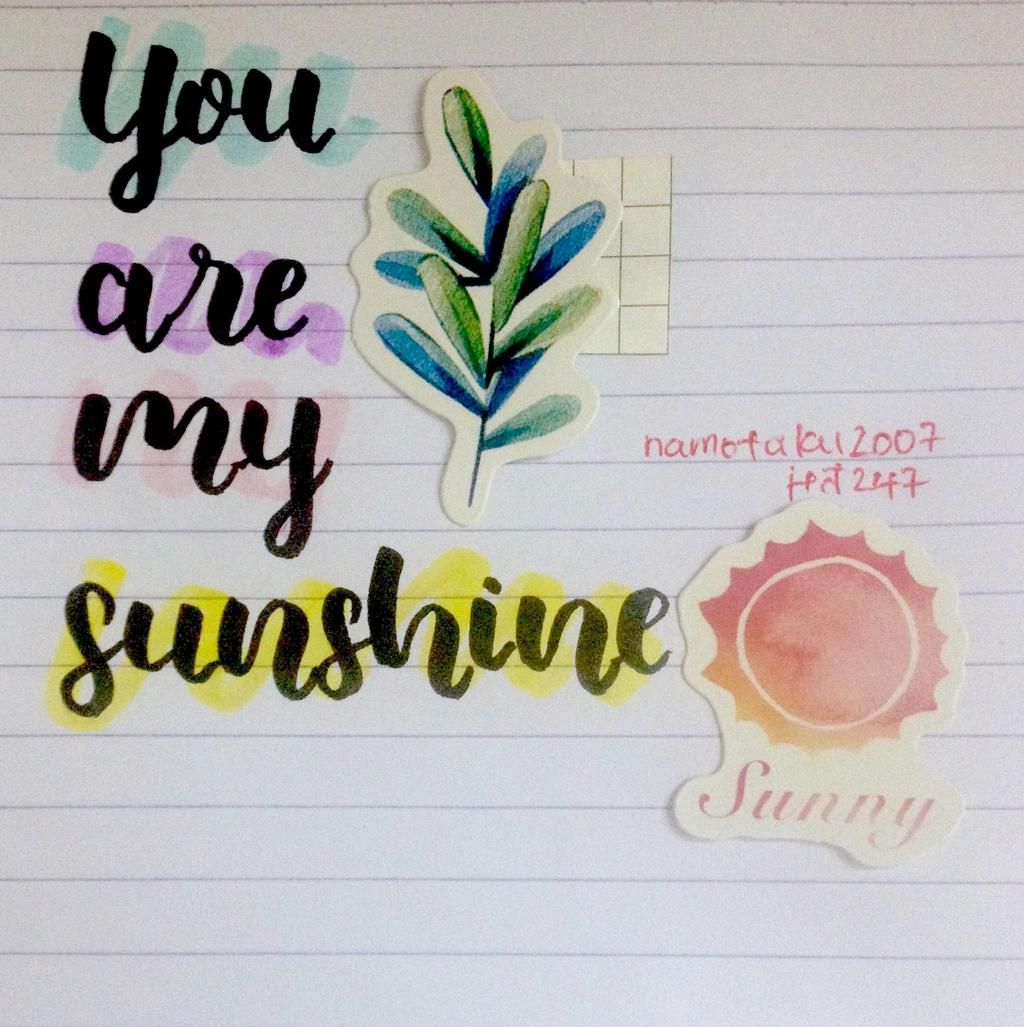 You
are
my
sunshine
namotaku2007
Sunny